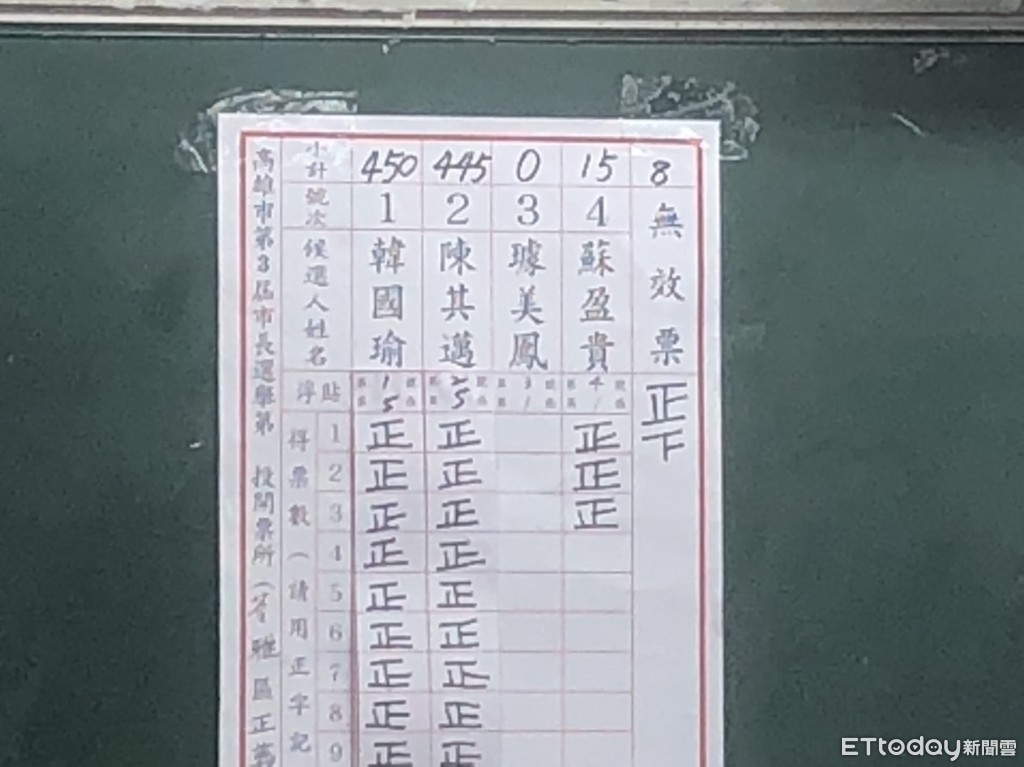 小計 450 445 0 15 8
號次 1 2 3 4 無效票
候選人姓名 韓國瑜 陳其邁 璩美鳳 蘇盈貴
浮貼 1 5 2 5 3 4
高雄市第3屆市長選舉第 投開票所(苓雅區正
得票數(請用正字記
1 正 正 正 正
2 正 正 正 下
3 正 正 正
4 正 正
5 正 正
6 正 正
7 正 正
8 正 正
9 正 正
ETtoday新聞雲